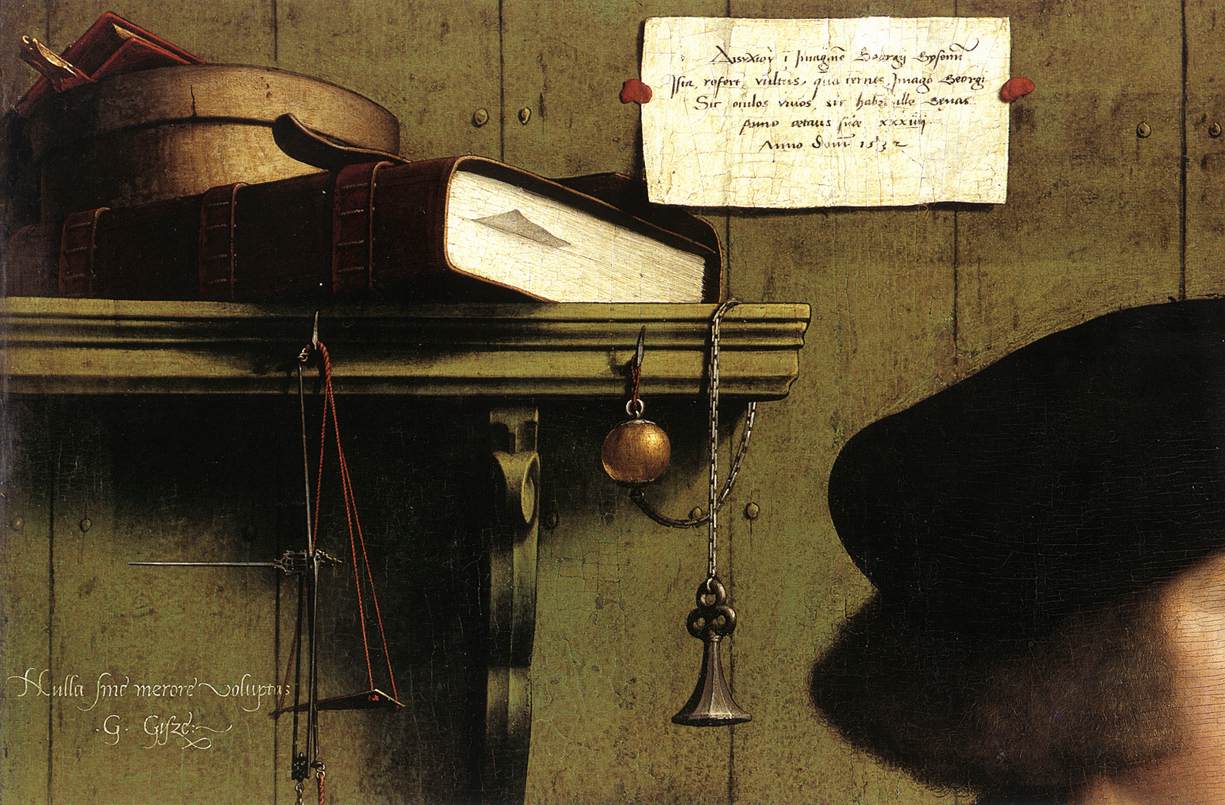 Διςιχὸν ĩ Imaginē Georgij Gysenij
Ista refert vultus, quā cernis, Imago Georgi
Sic oculos viuos, sic habet ille Genas
Anno ætatis suæ xxxiiij
Anno dom̄ 1532
Nulla sine merore voluptas
·G· Gisze·